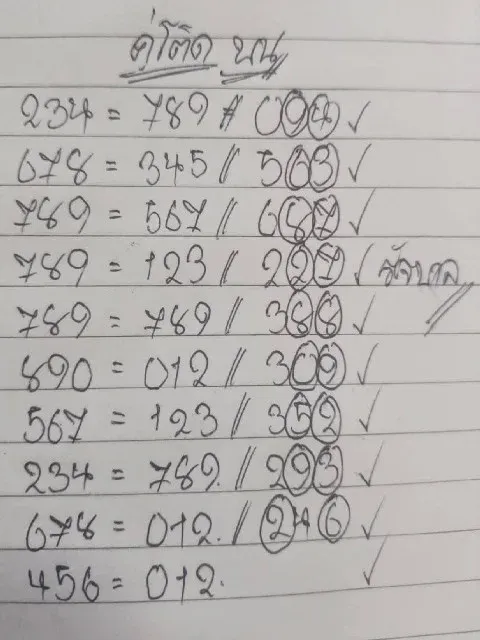 คู่โต๊ด บน
234 = 789 // 094 ✓
678 = 345 // 563 ✓
789 = 567 // 687 ✓
789 = 123 // 227 ✓ รัฐบาล
789 = 789 // 388 ✓
890 = 012 // 309 ✓
567 = 123 // 352 ✓
234 = 789. // 293 ✓
678 = 012. // 246 ✓
456 = 012. ✓